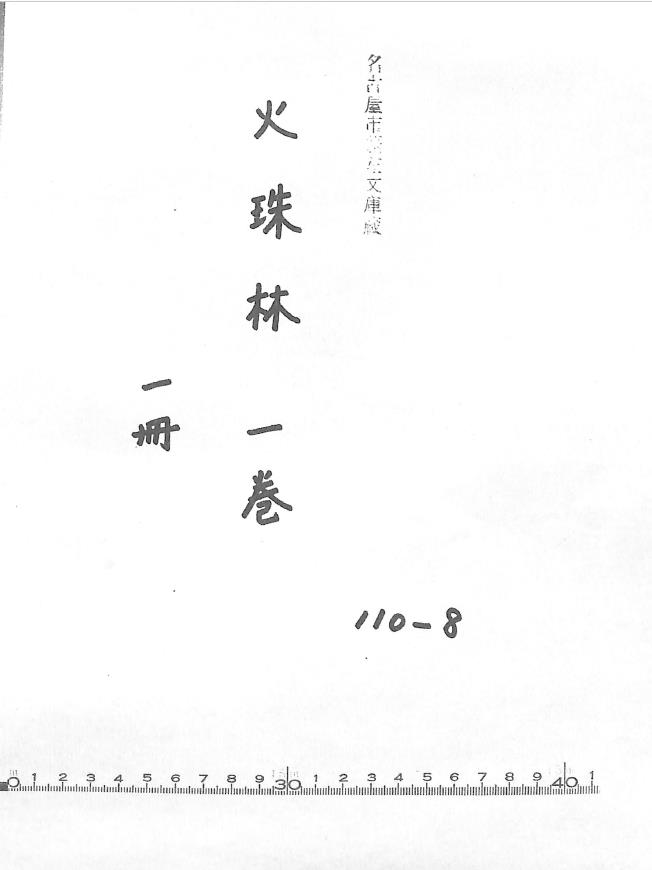 名古屋市蓬左文庫蔵
火珠林 一巻
一冊
110-8
0 1 2 3 4 5 6 7 8 9 30 1 2 3 4 5 6 7 8 9 40 1